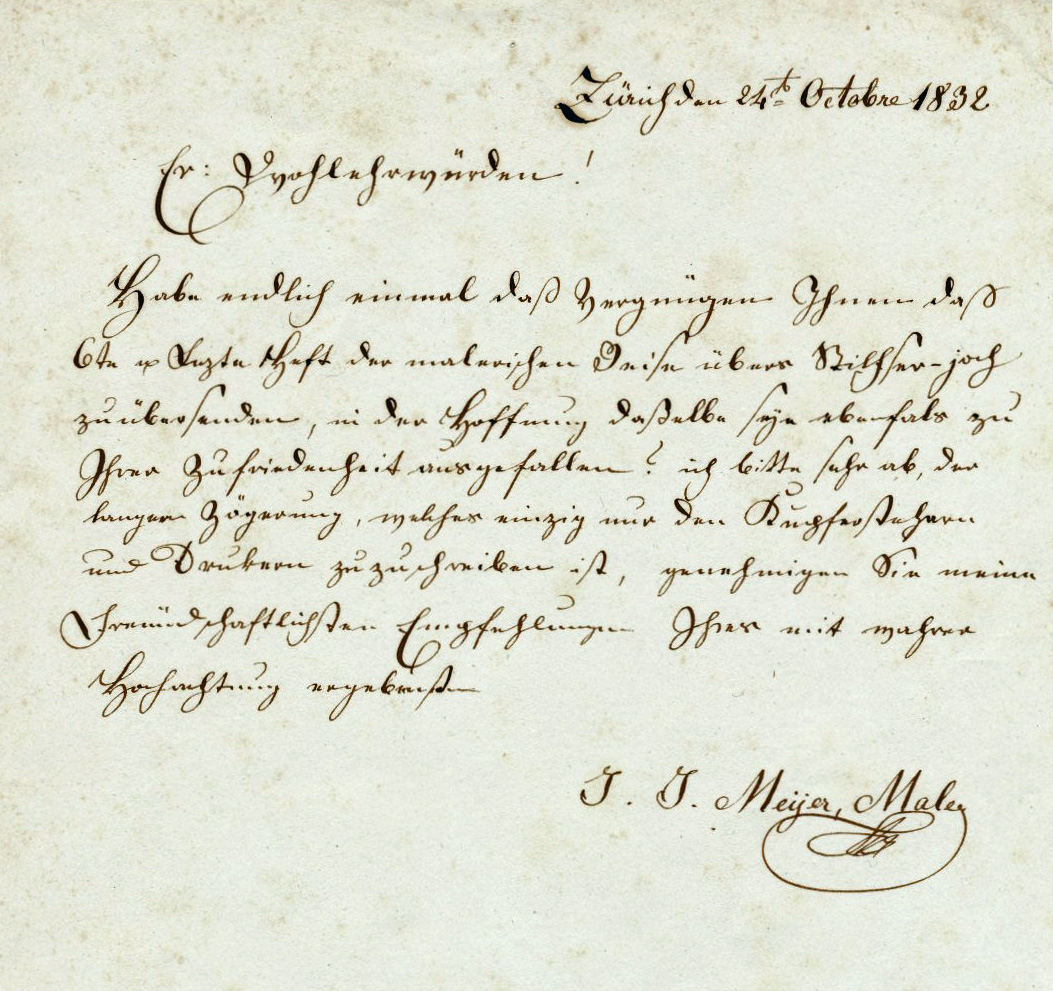 Zürich den 24t. Octobre 1832
Er: Wohlehrwürden!
Habe endlich einmal daß Vergnügen Ihnen daß
6te u Lezte Heft der malerischen Reise übers Stilfser-joch
zuübersenden, in der Hoffnung daßelbe seye ebenfals zu
Ihrer Zufriedenheit ausgefallen? ich bitte sehr ab, der
langen Zögerung, welches einzig nur den Kupferstechern
und Drukern zuzuschreiben ist, genehmigen Sie meine
Freundschaftlichsten Empfehlungen Ihres mit wahrer
Hochachtung ergebensten
J. J. Meijer, Maler